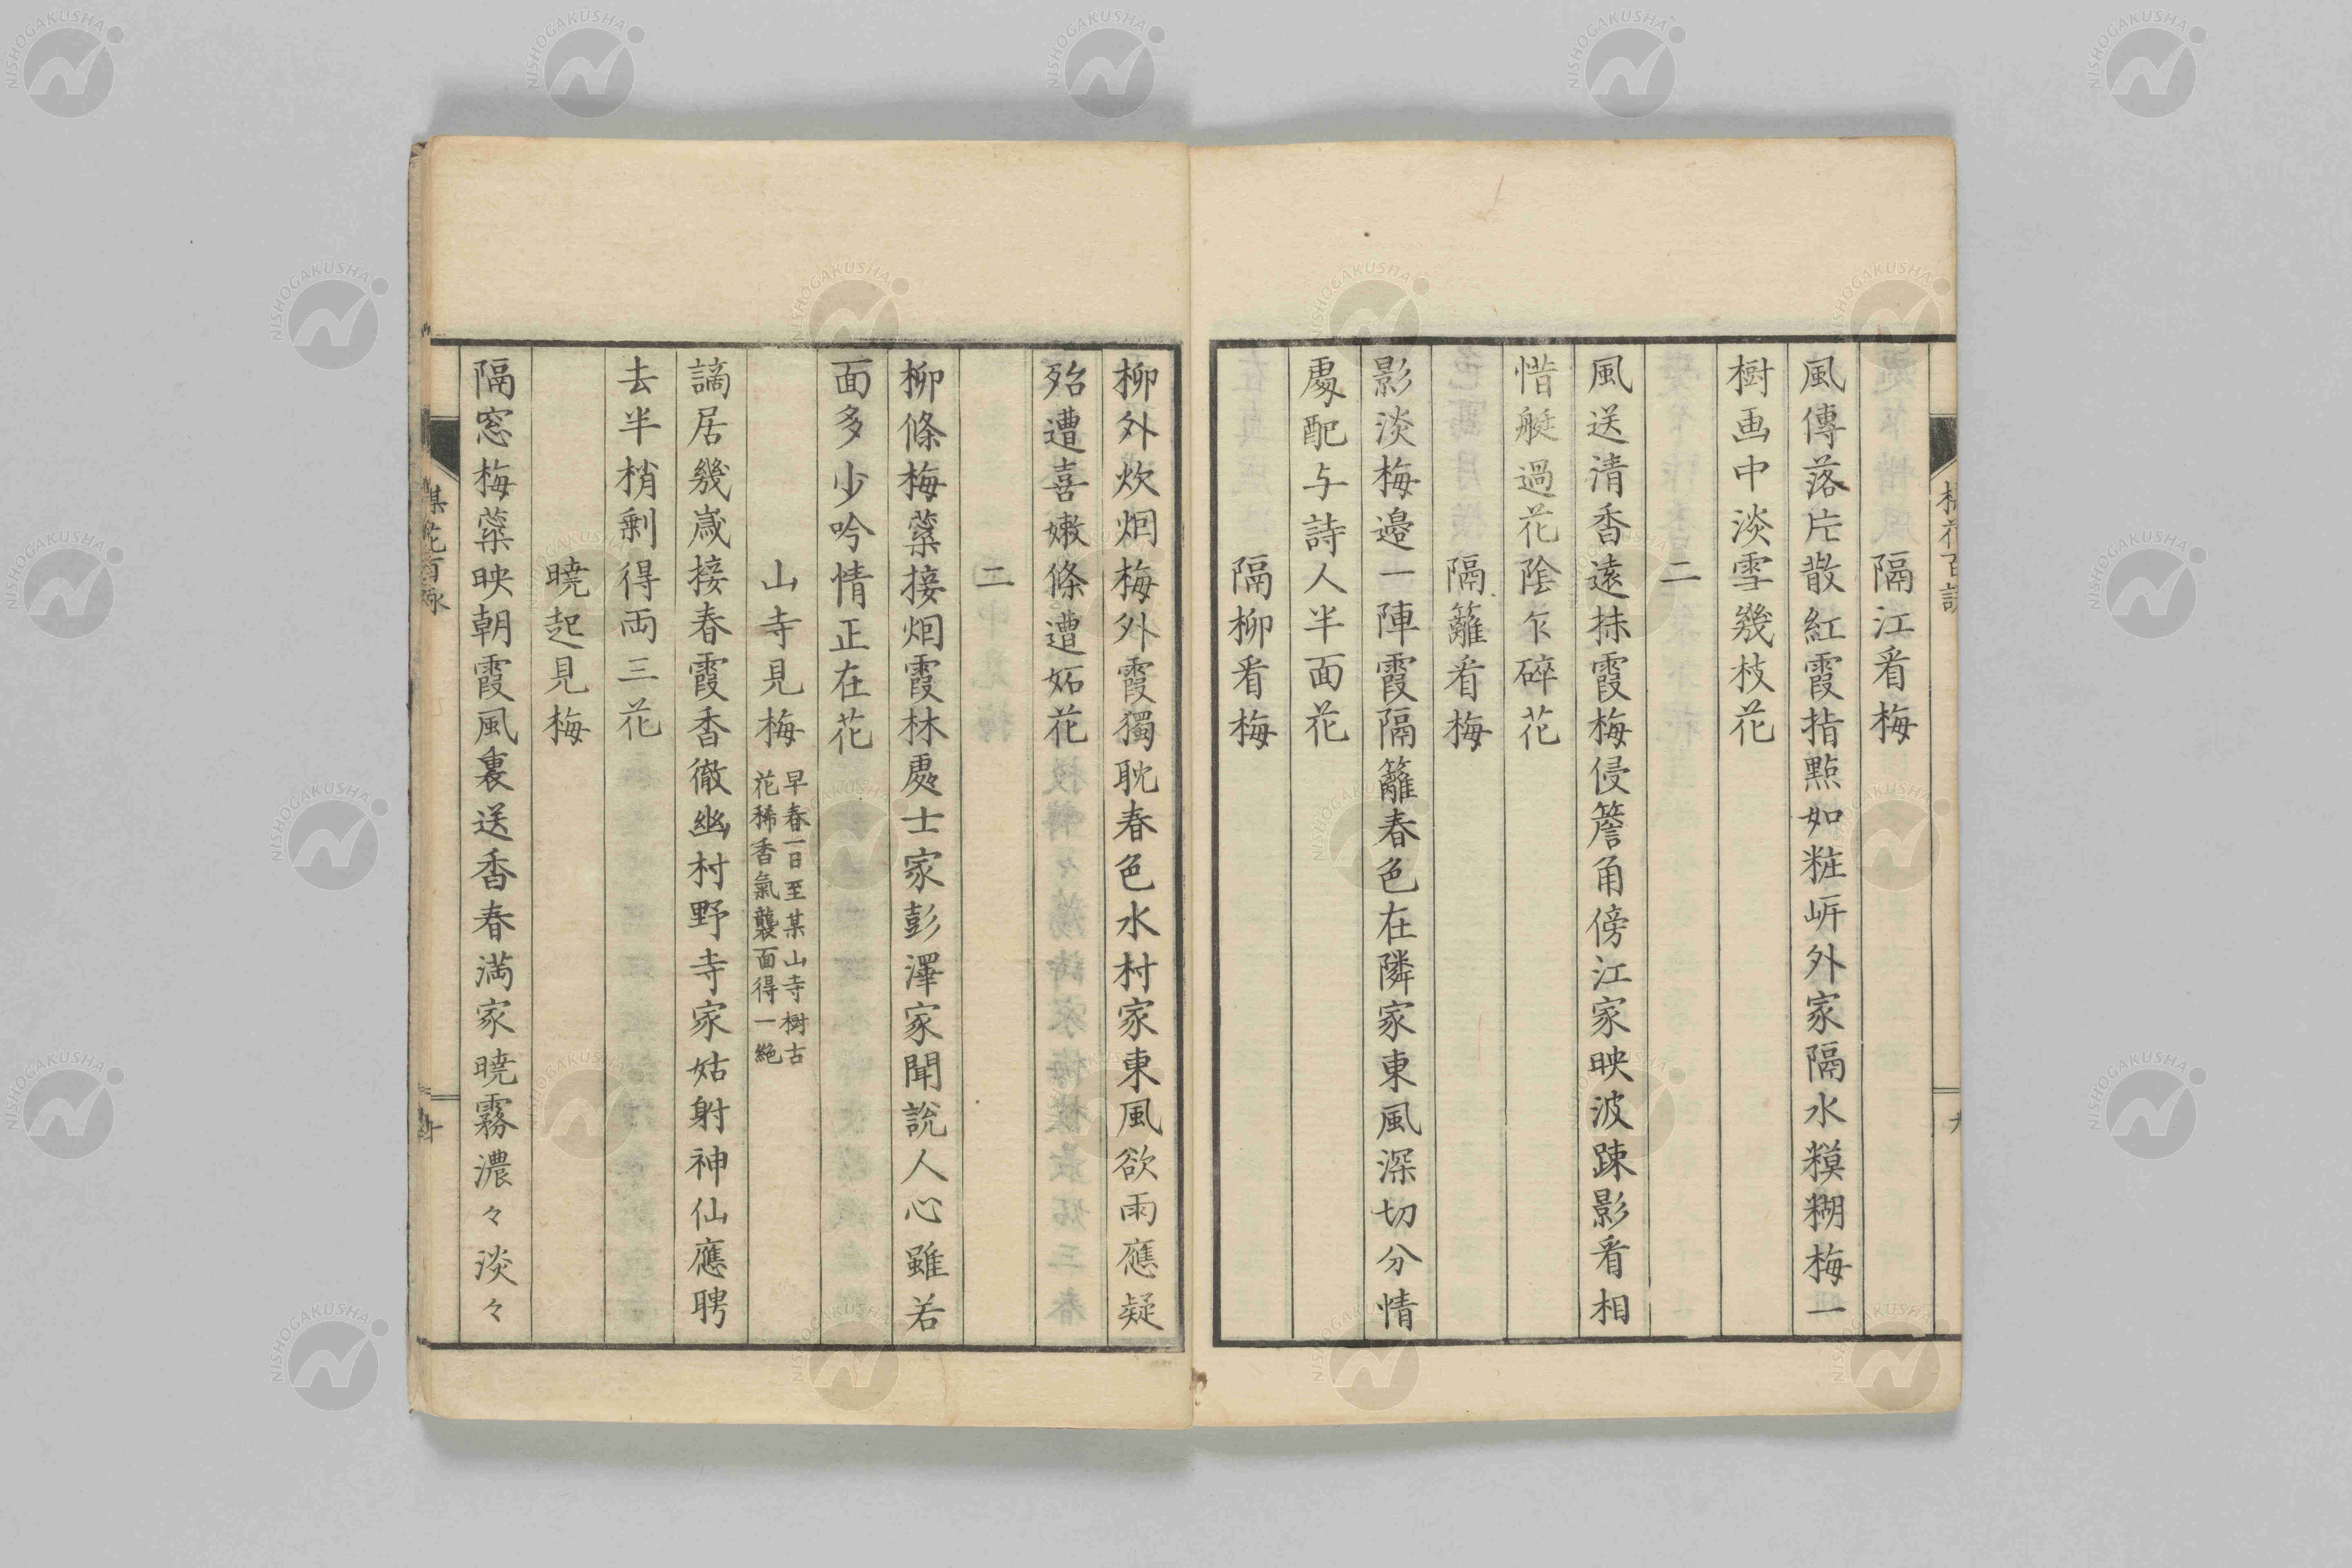 隔江看梅
風傳落片散紅霞指點如粧岍外家隔水糢糊梅一
樹画中淡雪幾枝花
二
風送清香遠抹霞梅侵簷角傍江家映波踈影看相
惜艇過花陰乍碎花
隔籬看梅
影淡梅邉一陣霞隔籬春色在隣家東風深切分情
處配与詩人半面花
隔柳看梅
柳外炊烟梅外霞獨耽春色水村家東風欲雨應疑
殆遭喜嫩條遭妬花
二
柳條梅蘂接烟霞林處士家彭澤家聞說人心雖若
面多少吟情正在花
山寺見梅
早春一日至某山寺樹古
花稀香氣襲面得一絶
謫居幾歳接春霞香徹幽村野寺家姑射神仙應聘
去半梢剰得両三花
曉起見梅
隔窓梅蘂映朝霞風裏送香春満家曉霧濃々淡々
梅花百詠
十
NISHOGAKUSHA